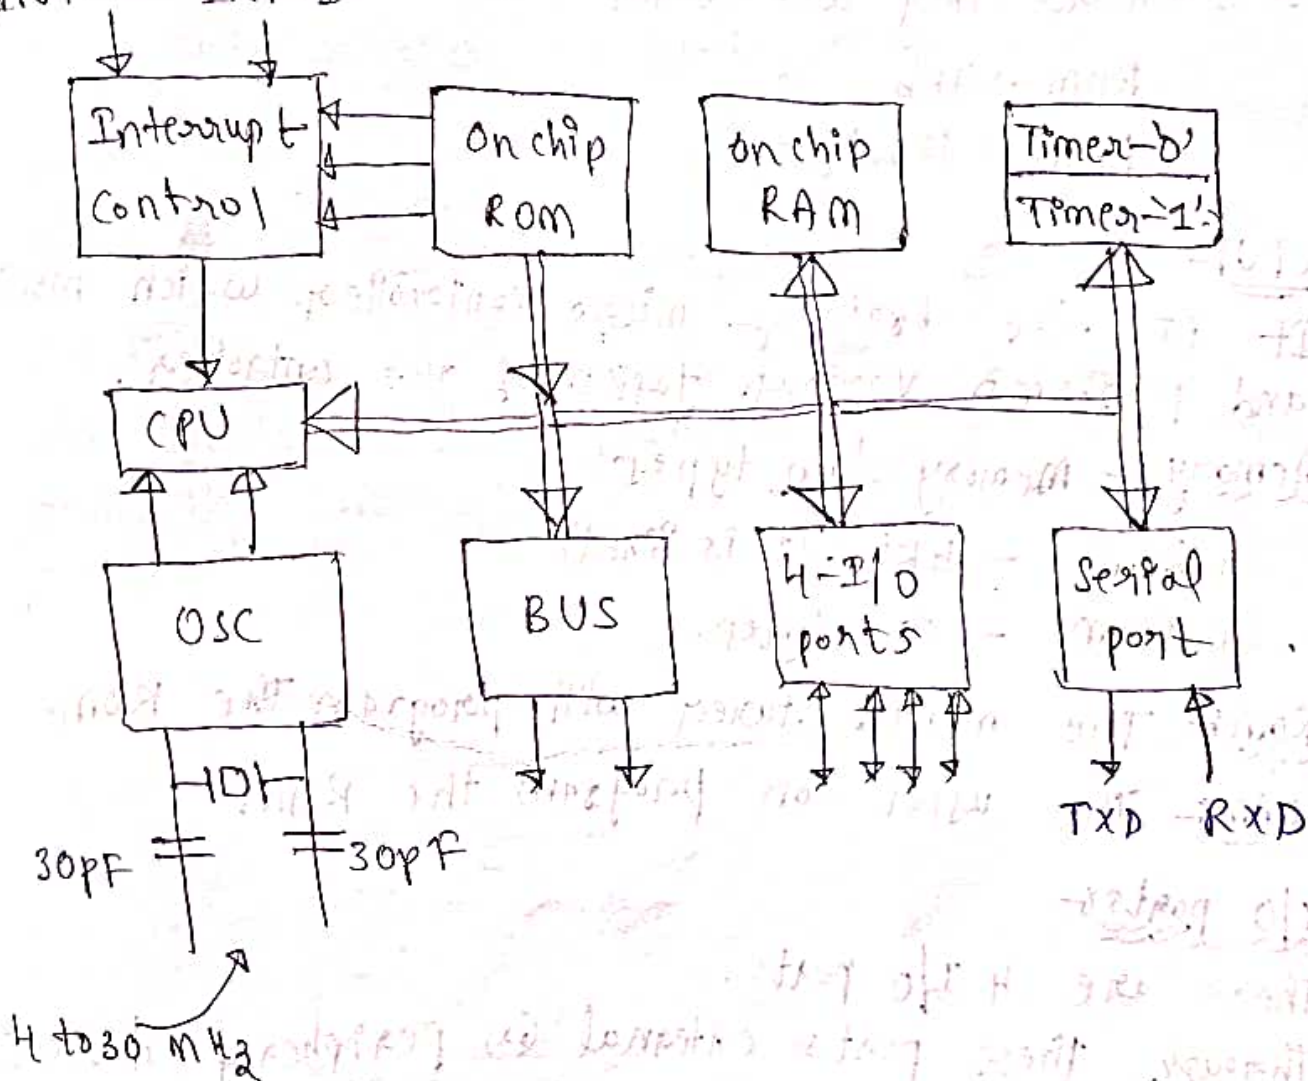 Interrupt
Control
On chip
ROM
on chip
RAM
Timer-'0'
Timer-'1'
CPU
OSC
BUS
4-I/O
ports
Serial
port
TXD
RXD
30pF
30pF
4 to 30 MHz